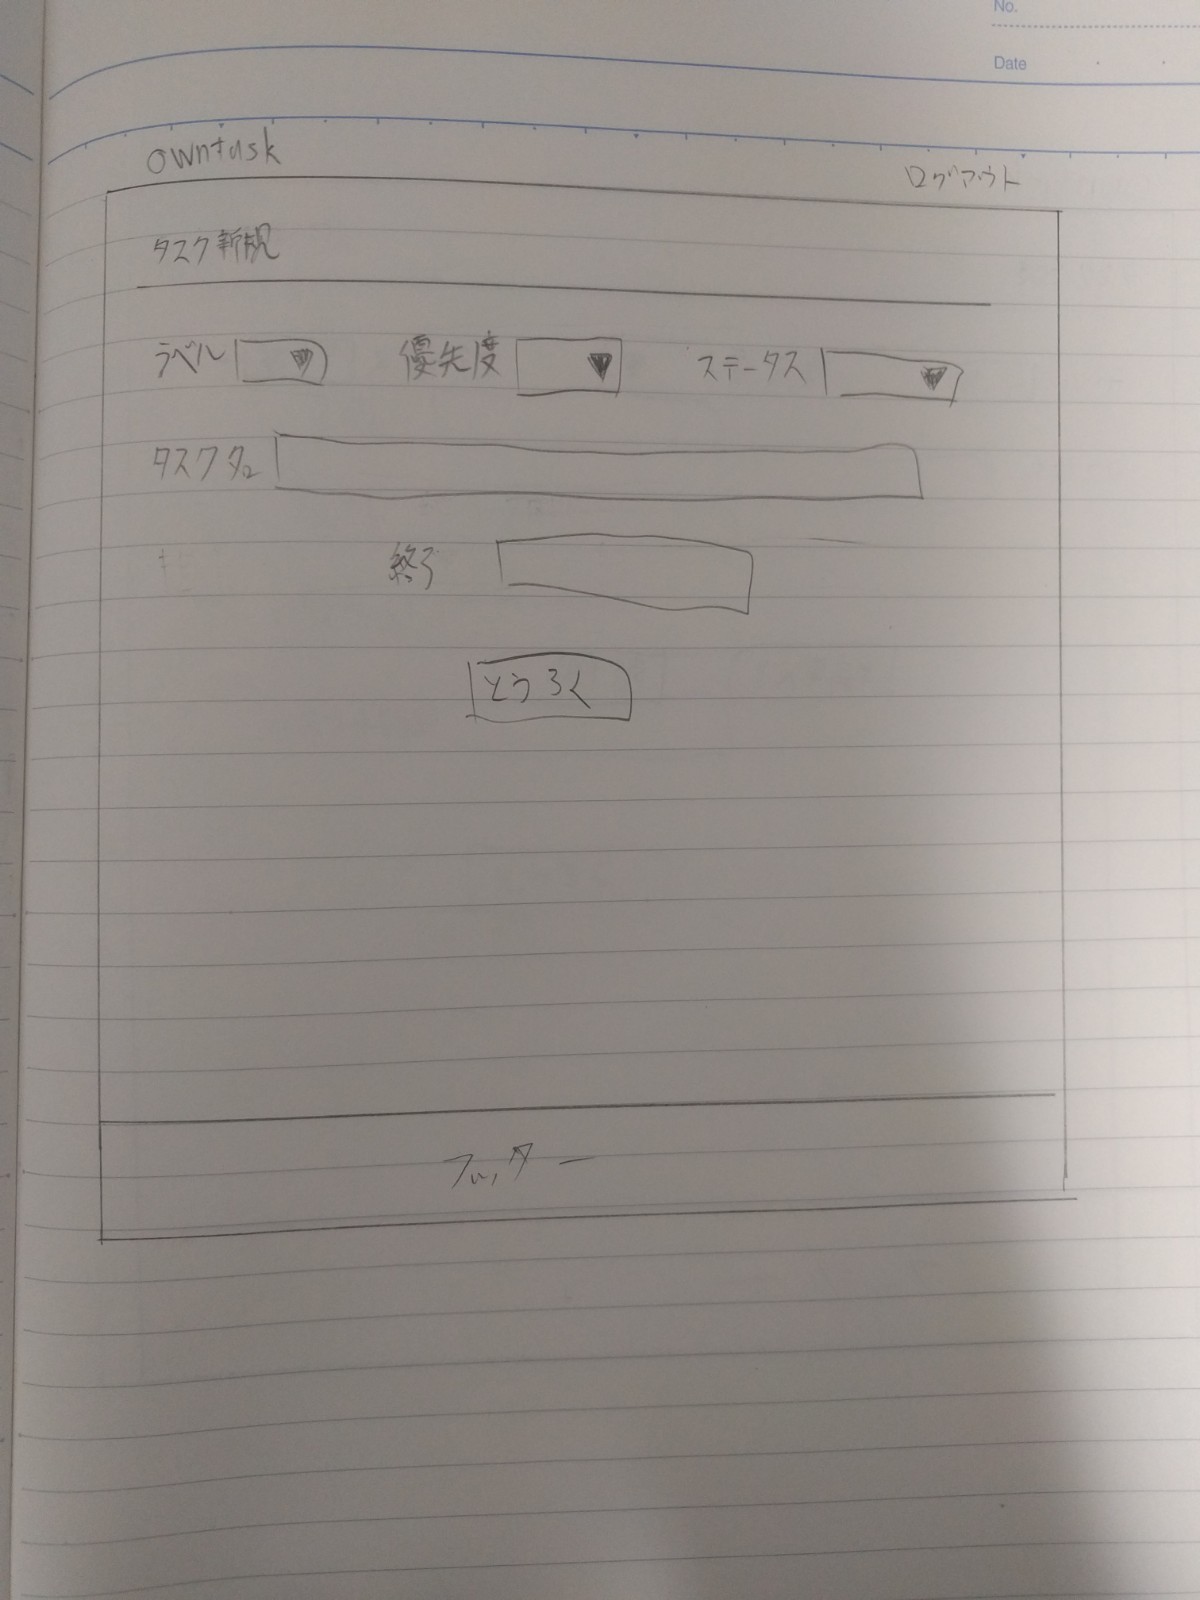 No.
Date
owntask
ログアウト
タスク新規
ラベル 優先度 ステータス
タスク名
終了
とうろく
フッター